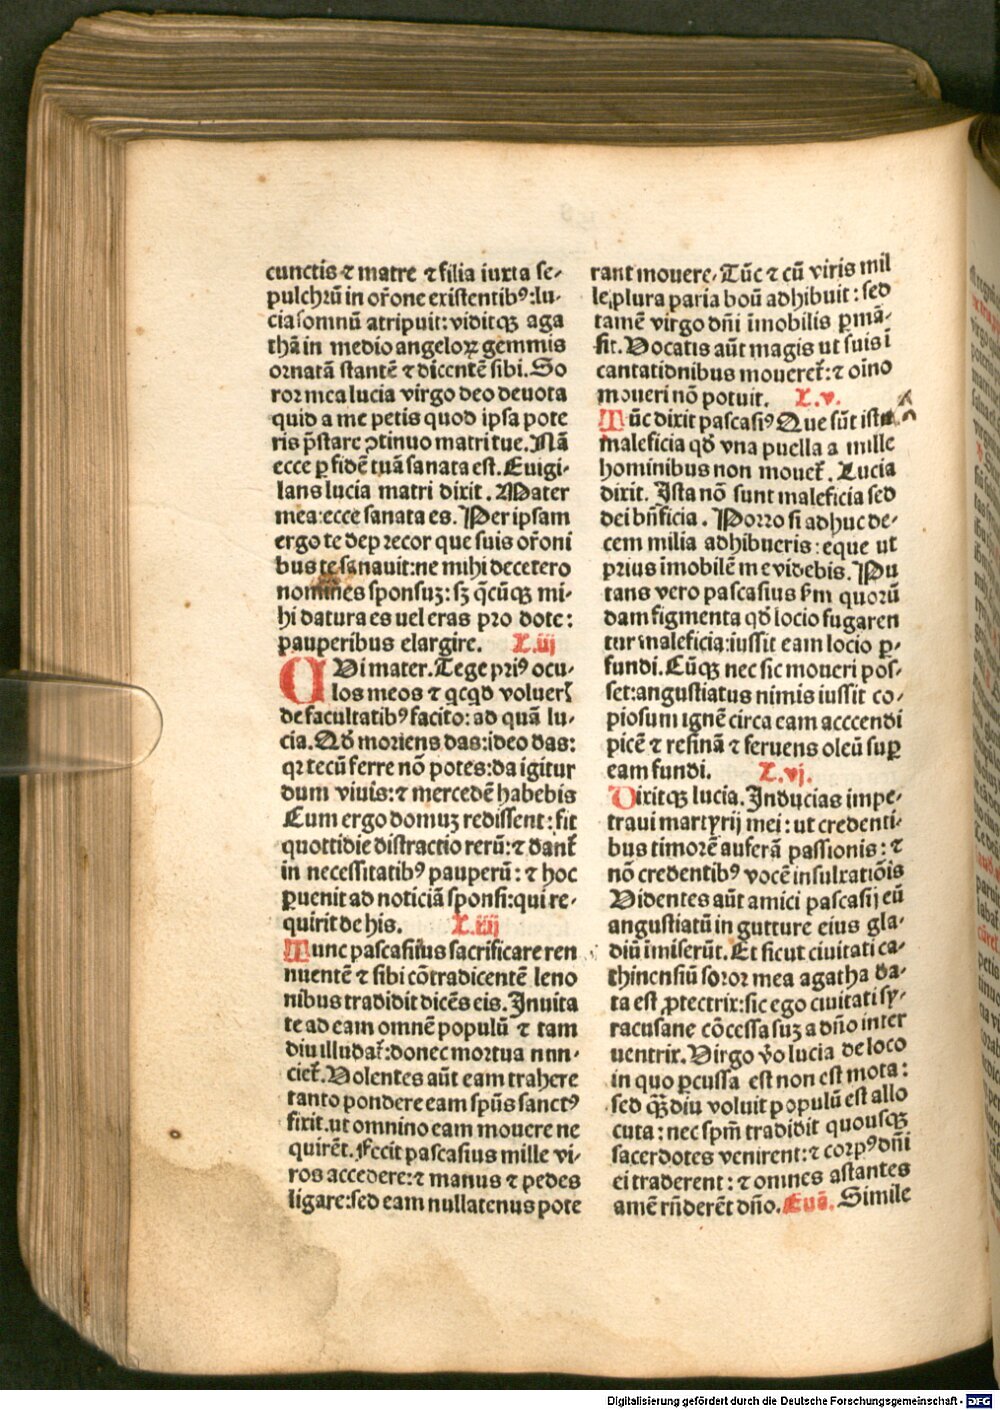 cunctis ⁊ matre ⁊ filia iuxta se-
pulchrū in or̄one existentibꝰ: lu-
cia somnū atripuit: viditqꝫ aga
thā in medio angeloꝝ gemmis
ornatā stantē ⁊ dicentē sibi. So
ror mea lucia virgo deo deuota
quid a me petis quod ipsa pote
ris p̄stare ꝯtinuo matri tue. Nā
ecce ꝑ fidē tuā sanata est. Euigi-
lans lucia matri dixit. Mater
mea: ecce sanata es. Per ipsam
ergo te deprecor que suis or̄oni
bus te sanauit: ne mihi decetero
nomines sponsuꝫ: sꝫ q̄cūqꝫ mi-
hi datura es uel eras pro dote:
pauperibus elargire. L. iij
CVi mater. Tege priꝰ ocu-
los meos ⁊ qcqd voluerꝭ
de facultatibꝰ facito: ad quā lu-
cia. Qđ moriens das: ideo das:
qꝛ tecū ferre nō potes: da igitur
dum viuis: ⁊ mercedē habebis
Cum ergo domuꝫ redissent: fit
quottidie distractio rerū: ⁊ dant̄
in necessitatibꝰ pauperū: ⁊ hoc
ꝑuenit ad noticiā sponsi: qui re-
quirit de his. L. iiij
Tunc pascasiius sacrificare ren
nuentē ⁊ sibi cōtradicentē leno
nibus tradidit dicēs eis. Inuita
te ad eam omnē populū ⁊ tam
diu illudat̄: donec mortua nnn-
ciet̄. Volentes aūt eam trahere
tanto pondere eam spūs sanctꝰ
fixit. ut omnino eam mouere ne
quirēt. Fecit pascasius mille vi-
ros accedere: ⁊ manus ⁊ pedes
ligare: sed eam nullatenus pote
rant mouere. Tūc ⁊ cū viris mil
le, plura paria boū adhibuit: sed
tamē virgo dn̄i īmobilis ꝑmā-
sit. Vocatis aūt magis ut suis ī
cantationibus moueret̄: ⁊ oīno
moueri nō potuit. L. v.
Tūc dixit pascasiꝰ Que sūt ista
maleficia qđ vna puella a mille
hominibus non mouet̄. Lucia
dixit. Ista nō sunt maleficia sed
dei bn̄ficia. Porro si adhuc de-
cem milia adhibueris: eque ut
prius īmobilē me videbis. Pu
tans vero pascasius ẜm quorū
dam figmenta qđ locio fugaren
tur maleficia: iussit eam locio ꝑ-
fundi. Cūqꝫ nec sic moueri pos-
set: angustiatus nimis iussit co-
piosum ignē circa eam acccendi
picē ⁊ resinā ⁊ feruens oleū suꝑ
eam fundi. L. vj.
Dixitqꝫ lucia. Inducias impe-
traui martyrij mei: ut credenti-
bus timorē auferā passionis: ⁊
nō credentibꝰ vocē insultatiōis
Videntes aūt amici pascasij eū
angustiatū in gutture eius gla-
diū īmiserūt. Et sicut ciuitati ca-
thinensiū soror mea agatha da-
ta est ꝓtectrix: sic ego ciuitati sy-
racusane cōcessa suꝫ a dn̄o inter
uentrix. Virgo v̄o lucia de loco
in quo ꝑcussa est non est mota:
sed qꝫdiu voluit populū est allo
cuta: nec spm̄ tradidit quousqꝫ
sacerdotes venirent: ⁊ corpꝰ dn̄i
ei traderent: ⁊ omnes astantes
amē rn̄derēt dn̄o. Euā. Simile
Digitalisierung gefördert durch die Deutsche Forschungsgemeinschaft - DFG